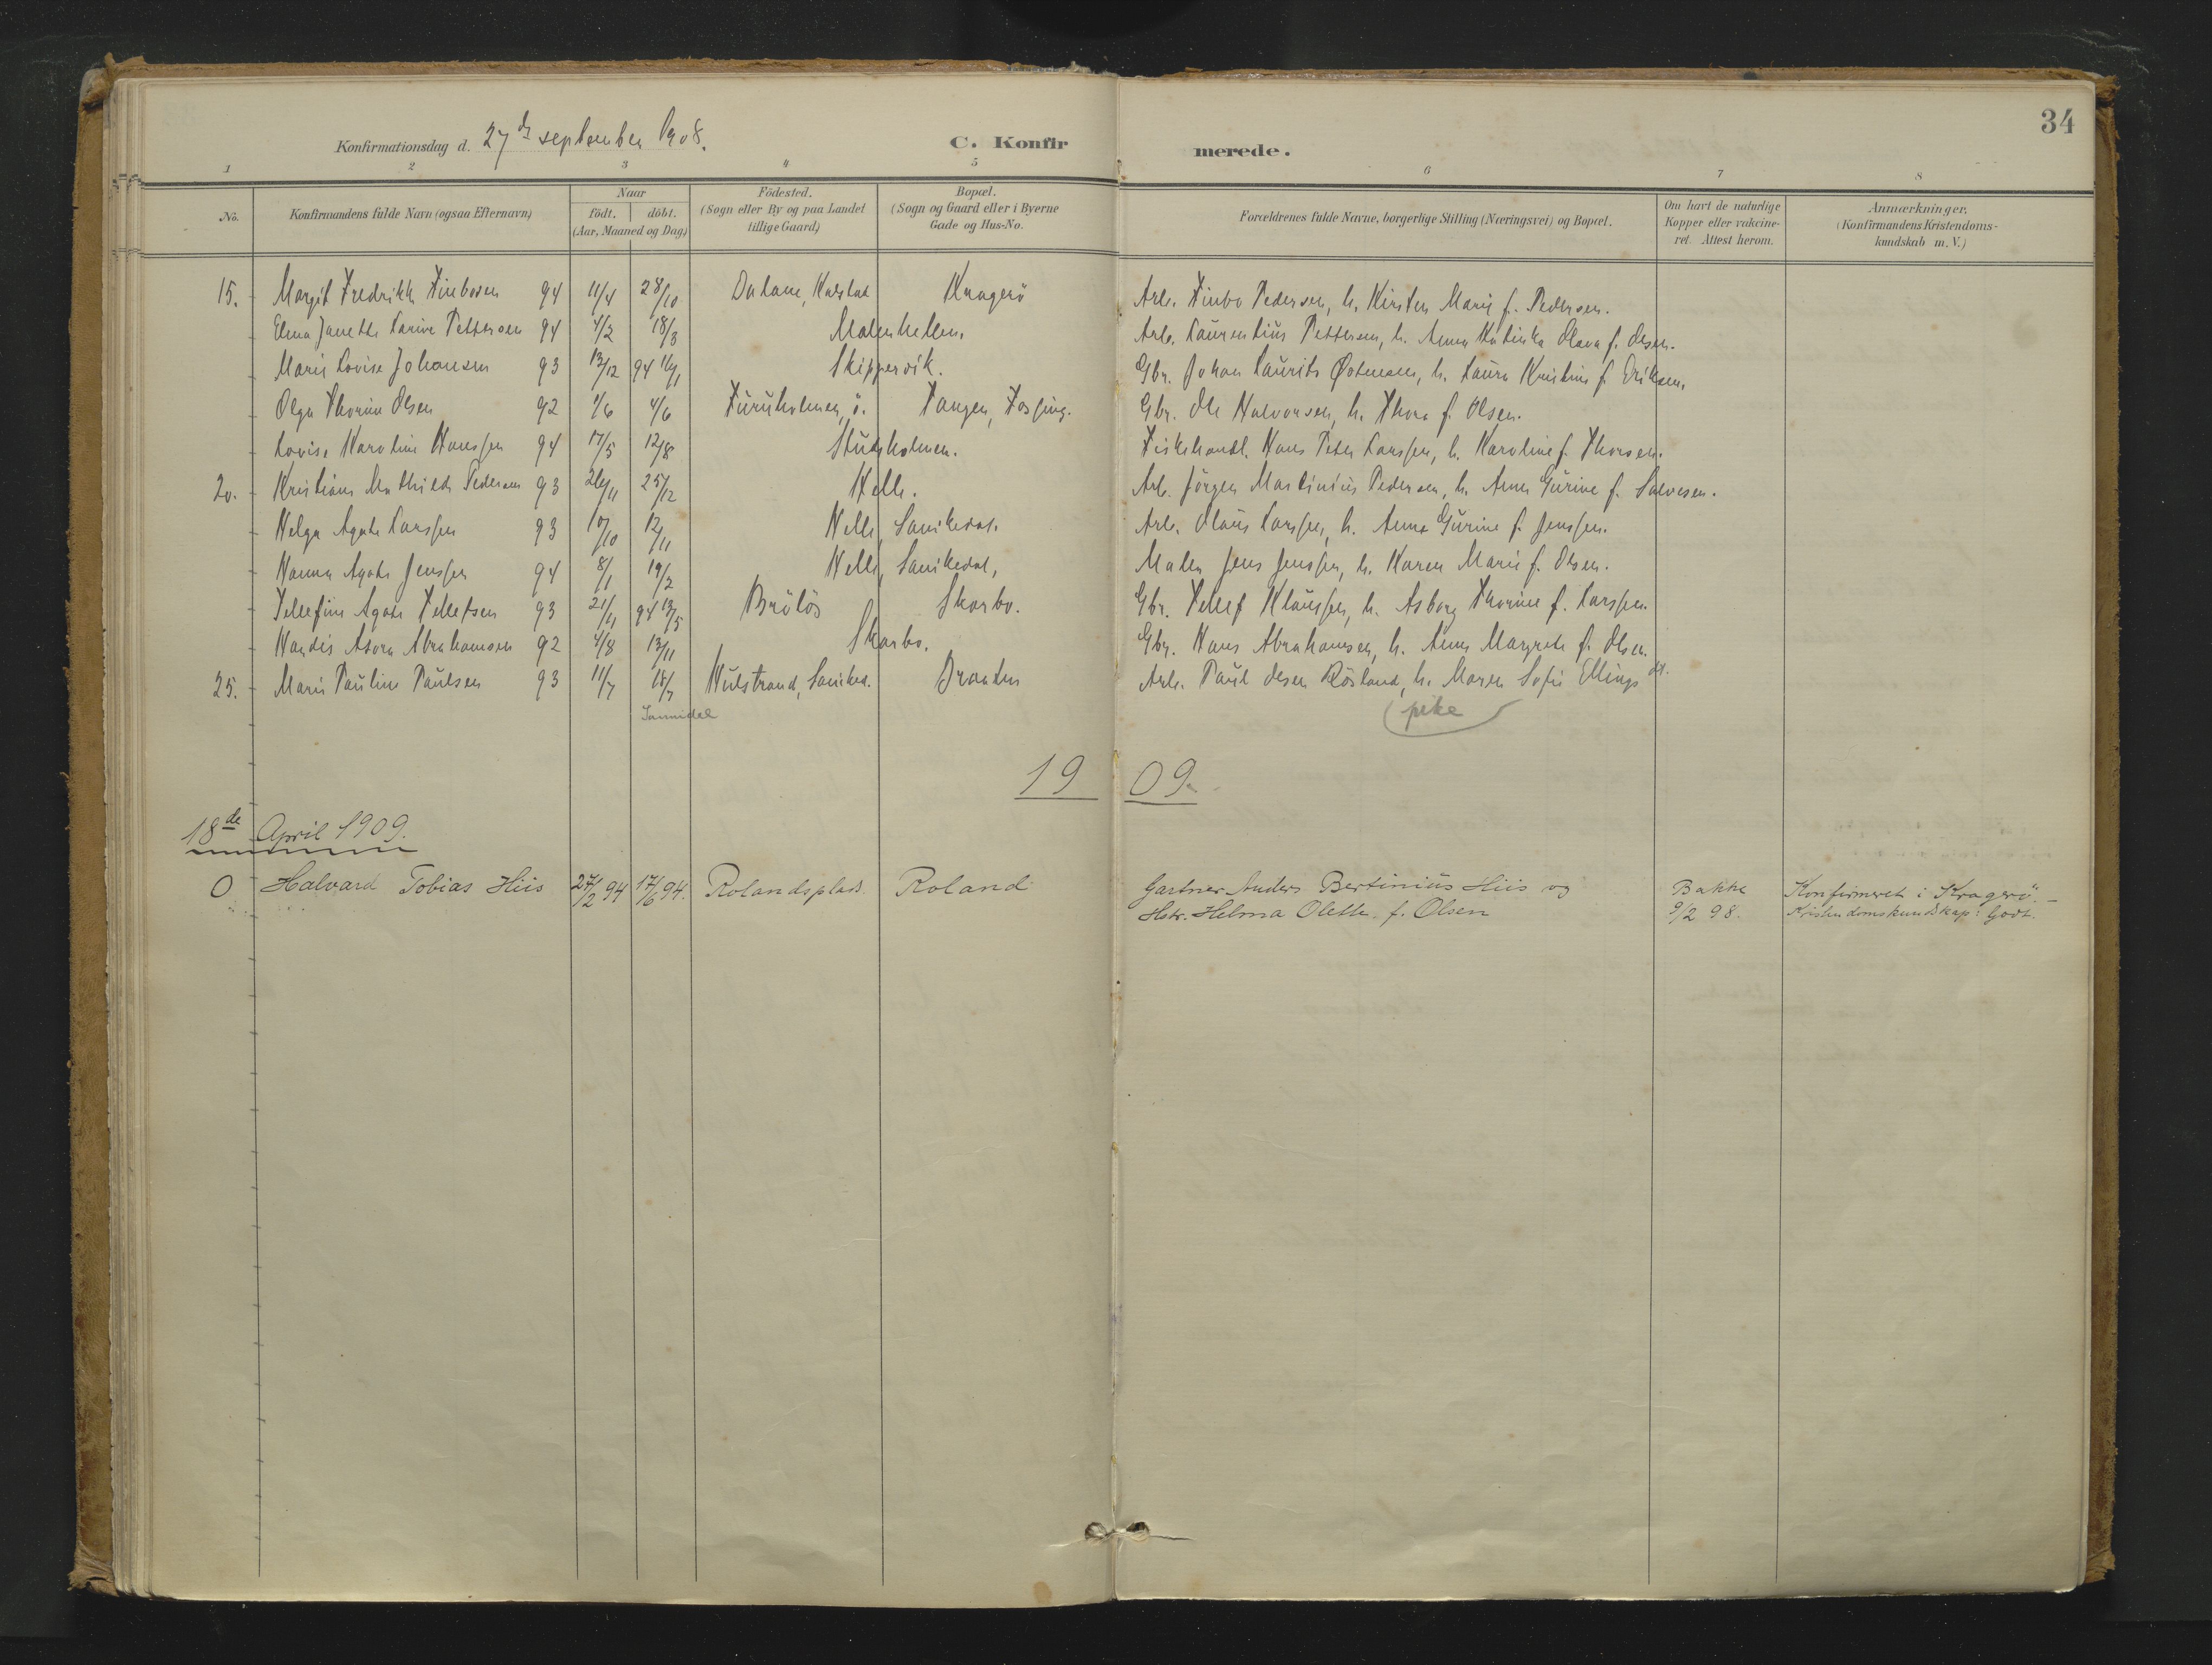 34
Konfirmationsdag d. 27de september 1908.
C. Konfirmerede.
1 2 3 4 5 6 7 8
No.
Konfirmandens fulde Navn (ogsaa Efternavn)
Naar
födt. döbt.
(Aar, Maaned og Dag)
Födested.
(Sogn eller By og paa Landet
tillige Gaard)
Bopæl.
(Sogn og Gaard eller i Byerne
Gade og Hus-No.
Forældrenes fulde Navne, borgerlige Stilling (Næringsvei) og Bopæl.
Om havt de naturlige
Kopper eller vakcine-
ret. Attest herom.
Anmærkninger.
(Konfirmandens Kristendoms-
kundskab m. V.)
15. Margit Fredrikke Finbosen 94 11/4 28/10 Dalane, Kalstad Kragerö Arb. Finbo Pedersen, h. Kirsten Marie f. Pedersen.
Elena Janette Larine Pettersen 94 4/2 18/3 Malmhellen. Arb. Laurentius Pettersen, h. Anna Katinka Olava f. Olsen.
Marie Lovise Johansen 93 13/12 94 16/1 Skippervik. Gbr. Johan Laurits Østensen, h. Laura Kristine f. Eriksen.
Olga Thorine Olsen 92 1/6 4/6 Furuholmen, ö. Tangen, Fossing. Gbr. Ole Halvorsen, h. Thora f. Olsen.
Lovise Karoline Hanssen 94 17/5 12/8 Stutsholmen. Fiskehandl. Hans Peter Larssen, h. Karoline f. Thorsen.
20. Kristiane Mathilde Pedersen 93 26/11 25/12 Helle. Arb. Jörgen Martinius Pedersen, h. Anne Gurine f. Salvesen.
Helga Agate Larssen 93 10/10 12/11 Helle, Sanikedal. Arb. Olaus Larssen, h. Anna Gurine f. Jenssen.
Hanna Agate Jenssen 94 8/1 19/2 Helle, Sanikedal, Maler Jens Jenssen, h. Karen Marie f. Olsen.
Tellefine Agate Tellefsen 93 21/11 94 13/5 Brölös Skarbo. Gbr. Tellef Klaussen, h. Asborg Thorine f. Larssen.
Handis Asora Abrahamsen 92 4/8 13/11 Skarbo. Gbr. Hans Abrahamsen, h. Anne Margrete f. Olsen.
25. Marie Pauline Paulsen 93 11/7 18/7 Hulstrand, Saniked. Braaten Arb. Paul Olsen Rösland, h. Maren Sofie Ellingsdt.
Sannidal
pike
1909.
18de April 1909.
0 Halvard Tobias Hiis 27/2 94 17/6 94. Rolandsplads. Roland Gartner Anders Bertinius Hiis og Bakke Konfirmeret i Kragerö. –
Hstr. Helma Olette f. Olsen 9/2 98. Kristendomskundskap: Godt.